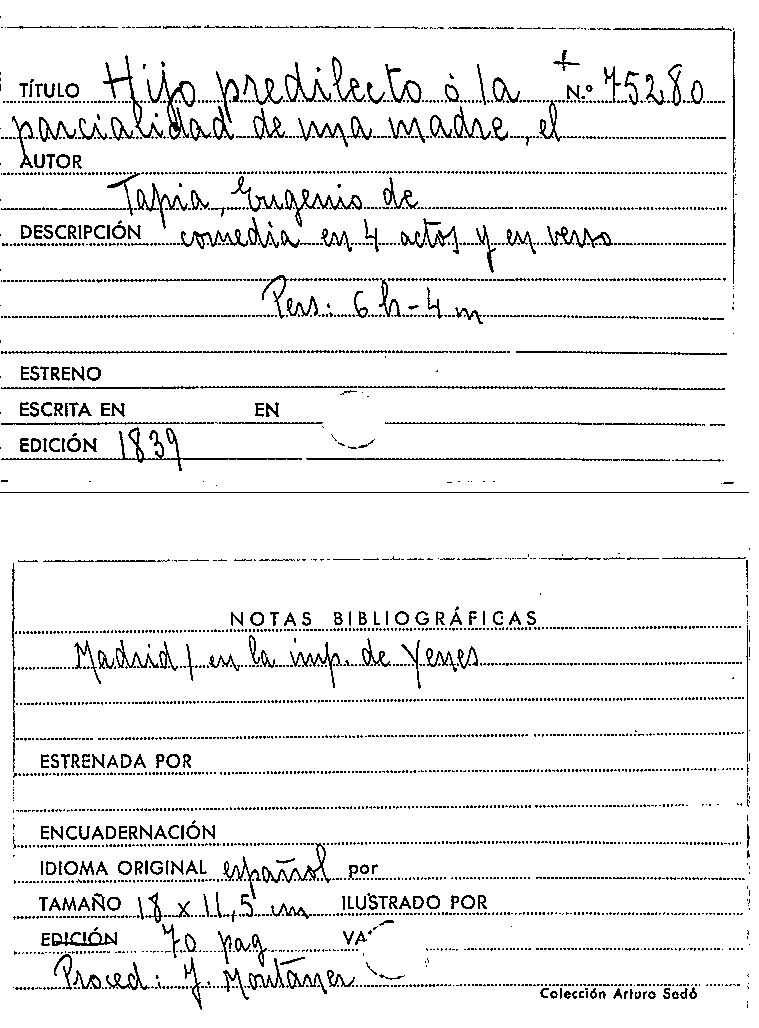 TÍTULO Hijo predilecto ó la N.º 75280
parcialidad de una madre, el
AUTOR
Tapia, Eugenio de
DESCRIPCIÓN comedia en 4 actos y en verso
Pers: 6 h - 4 m
ESTRENO
ESCRITA EN EN
EDICIÓN 1839
NOTAS BIBLIOGRÁFICAS
Madrid / en la imp. de Yenes
ESTRENADA POR
ENCUADERNACIÓN
IDIOMA ORIGINAL español por
TAMAÑO 18 x 11,5 cm ILUSTRADO POR
EDICIÓN 70 pag VA
Proced: J. Montaner
Colección Arturo Sedó